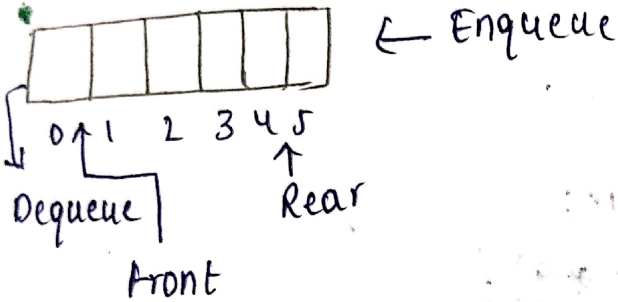 ← Enqueue
0 1 2 3 4 5
Dequeue
Rear
Front